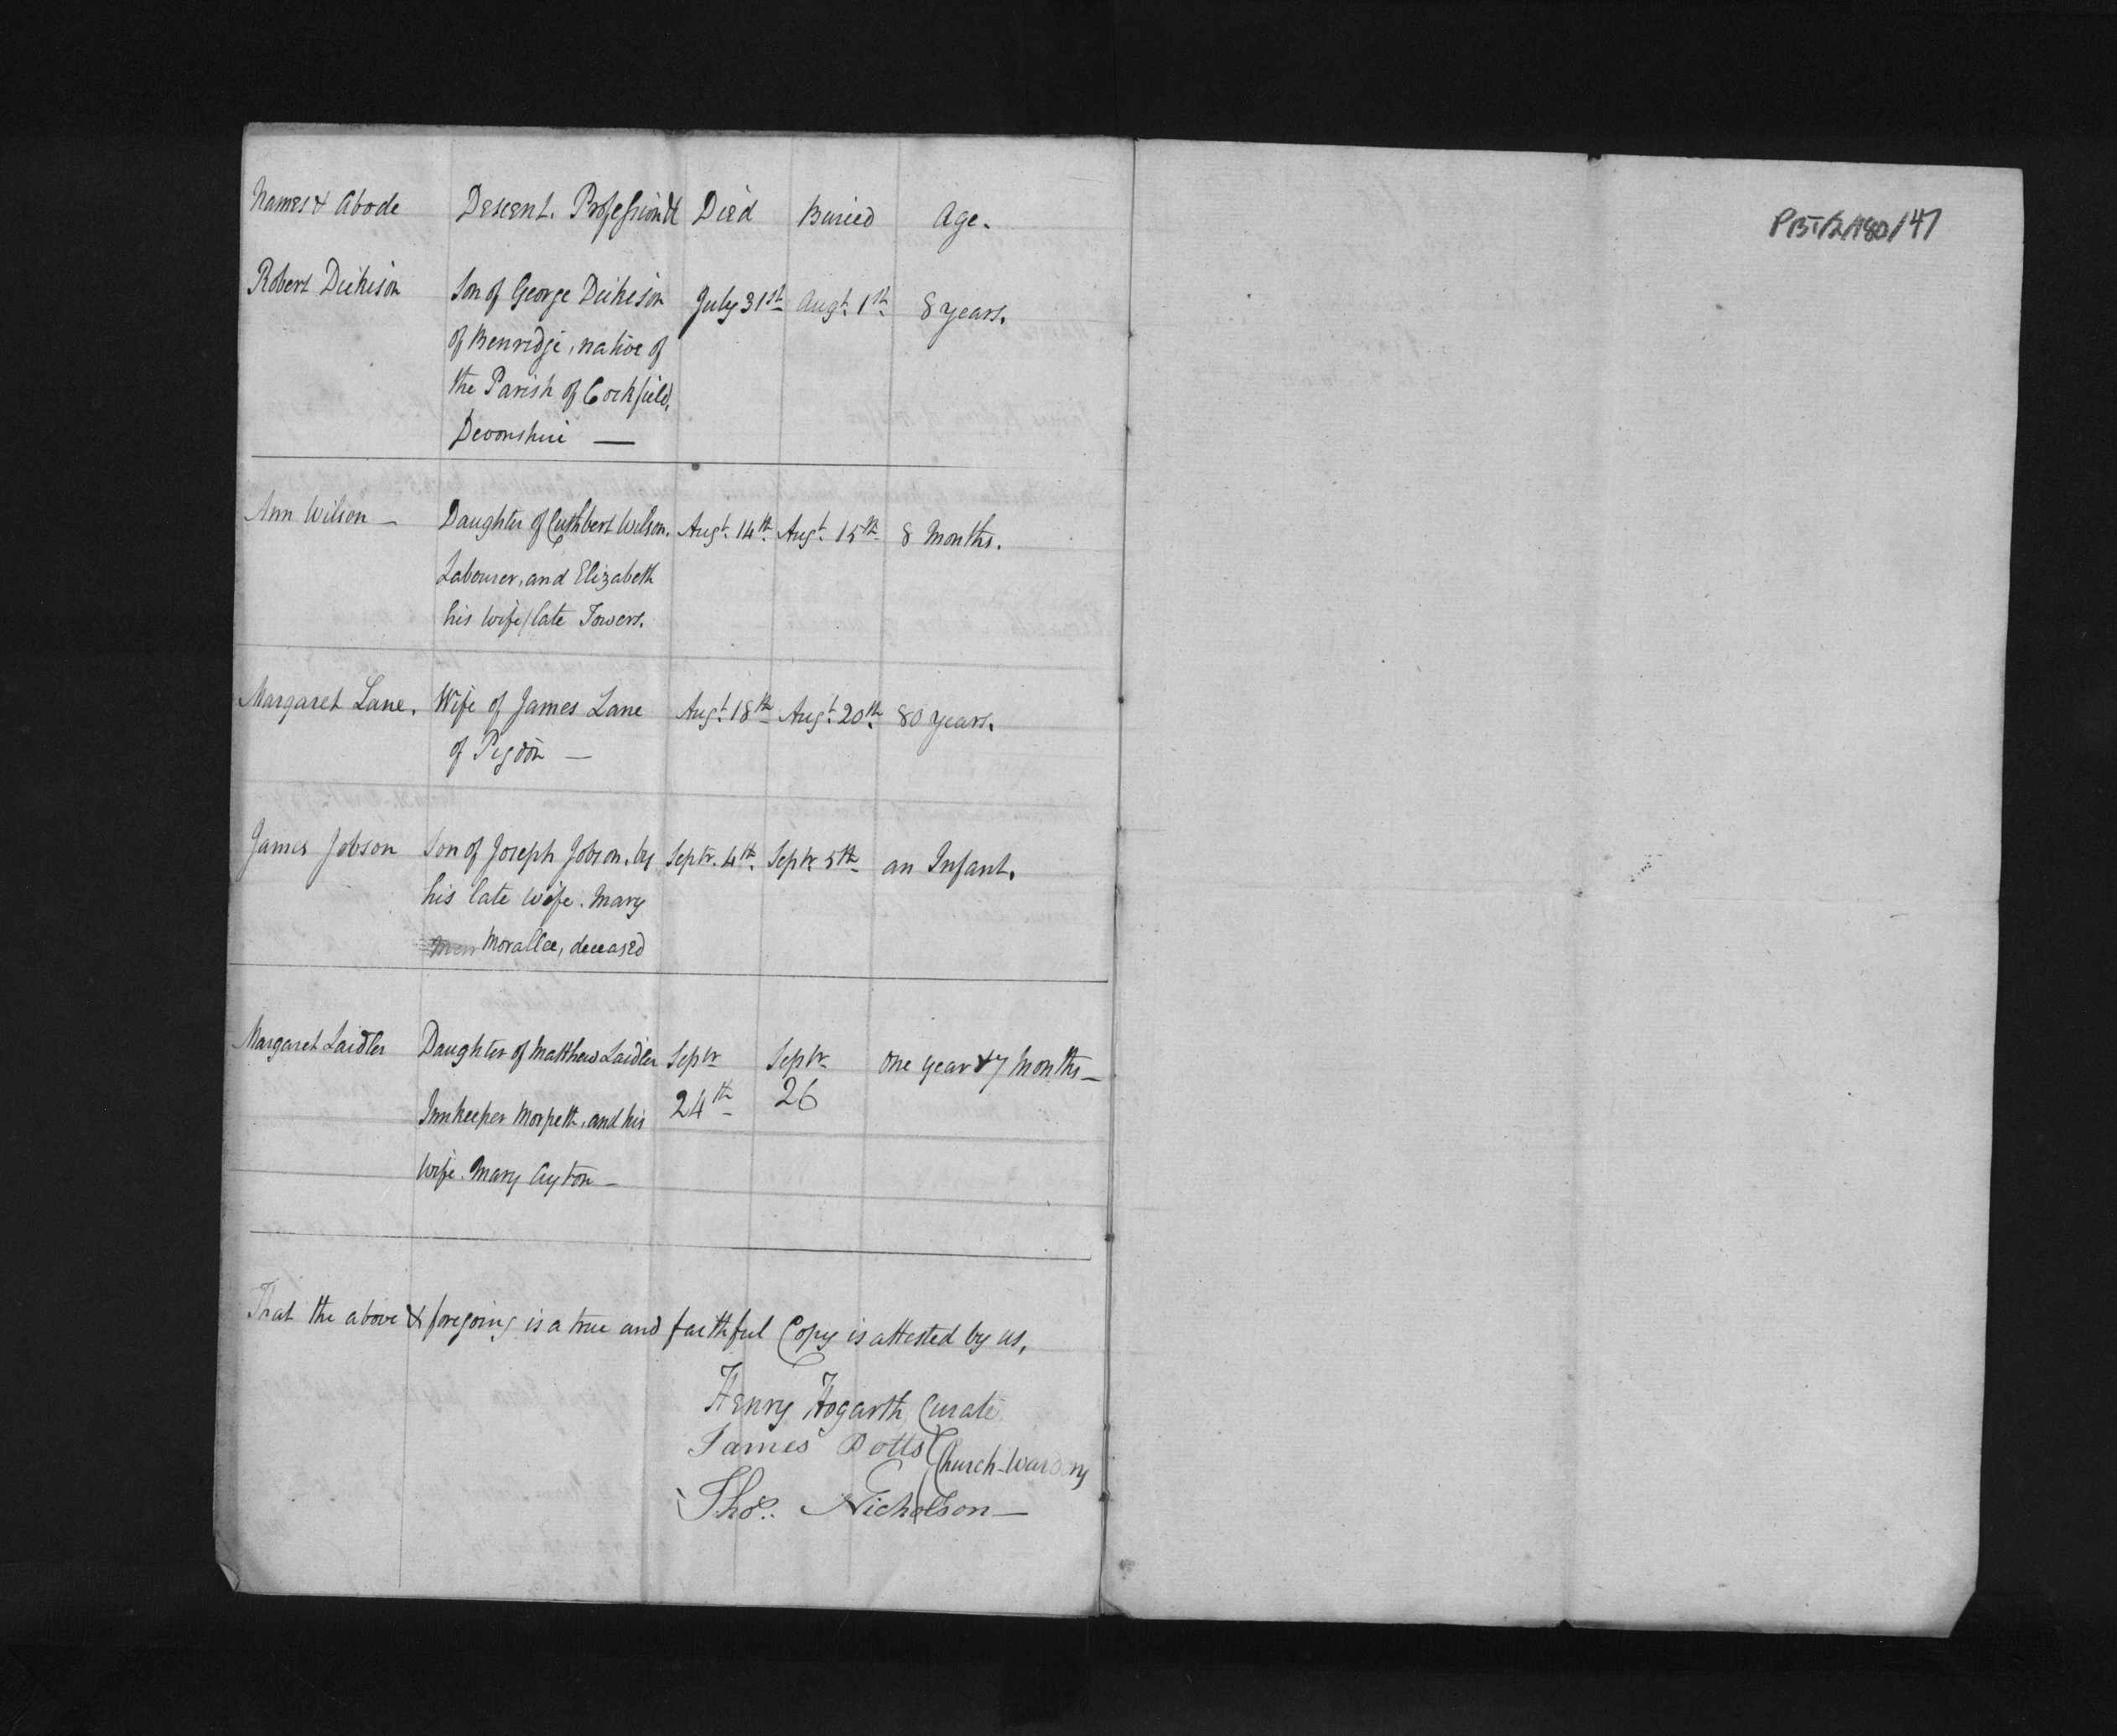 Names & Abode Descent. Profession & Died Buried Age.
Robert Dickison Son of George Dickison July 31st Augt. 1st 8 years.
of Benridge, native of
the Parish of Cockfield,
Devonshire —
Ann Wilson — Daughter of Cuthbert Wilson. Augt. 14th. Augt. 15th 8 Months.
Labourer, and Elizabeth
his wife/late Towers.
Margaret Lane. Wife of James Lane Augt. 18th Augt. 20th. 80 years.
of Pigdon —
James Jobson Son of Joseph Jobson, by Septr. 4th. Septr. 5th an Infant.
his late wife. Mary
Morallee, deceased
Margaret Laidler Daughter of Matthew Laidler Septr Septr One year & 7 Months —
Innkeeper Morpeth, and his 24th 26
wife. Mary Ayton —
That the above & foregoing is a true and faithful Copy is attested by us,
Henry Hogarth Curate
James Potts Church-Wardens
Thos. Nicholson —
PBT/2/180/47